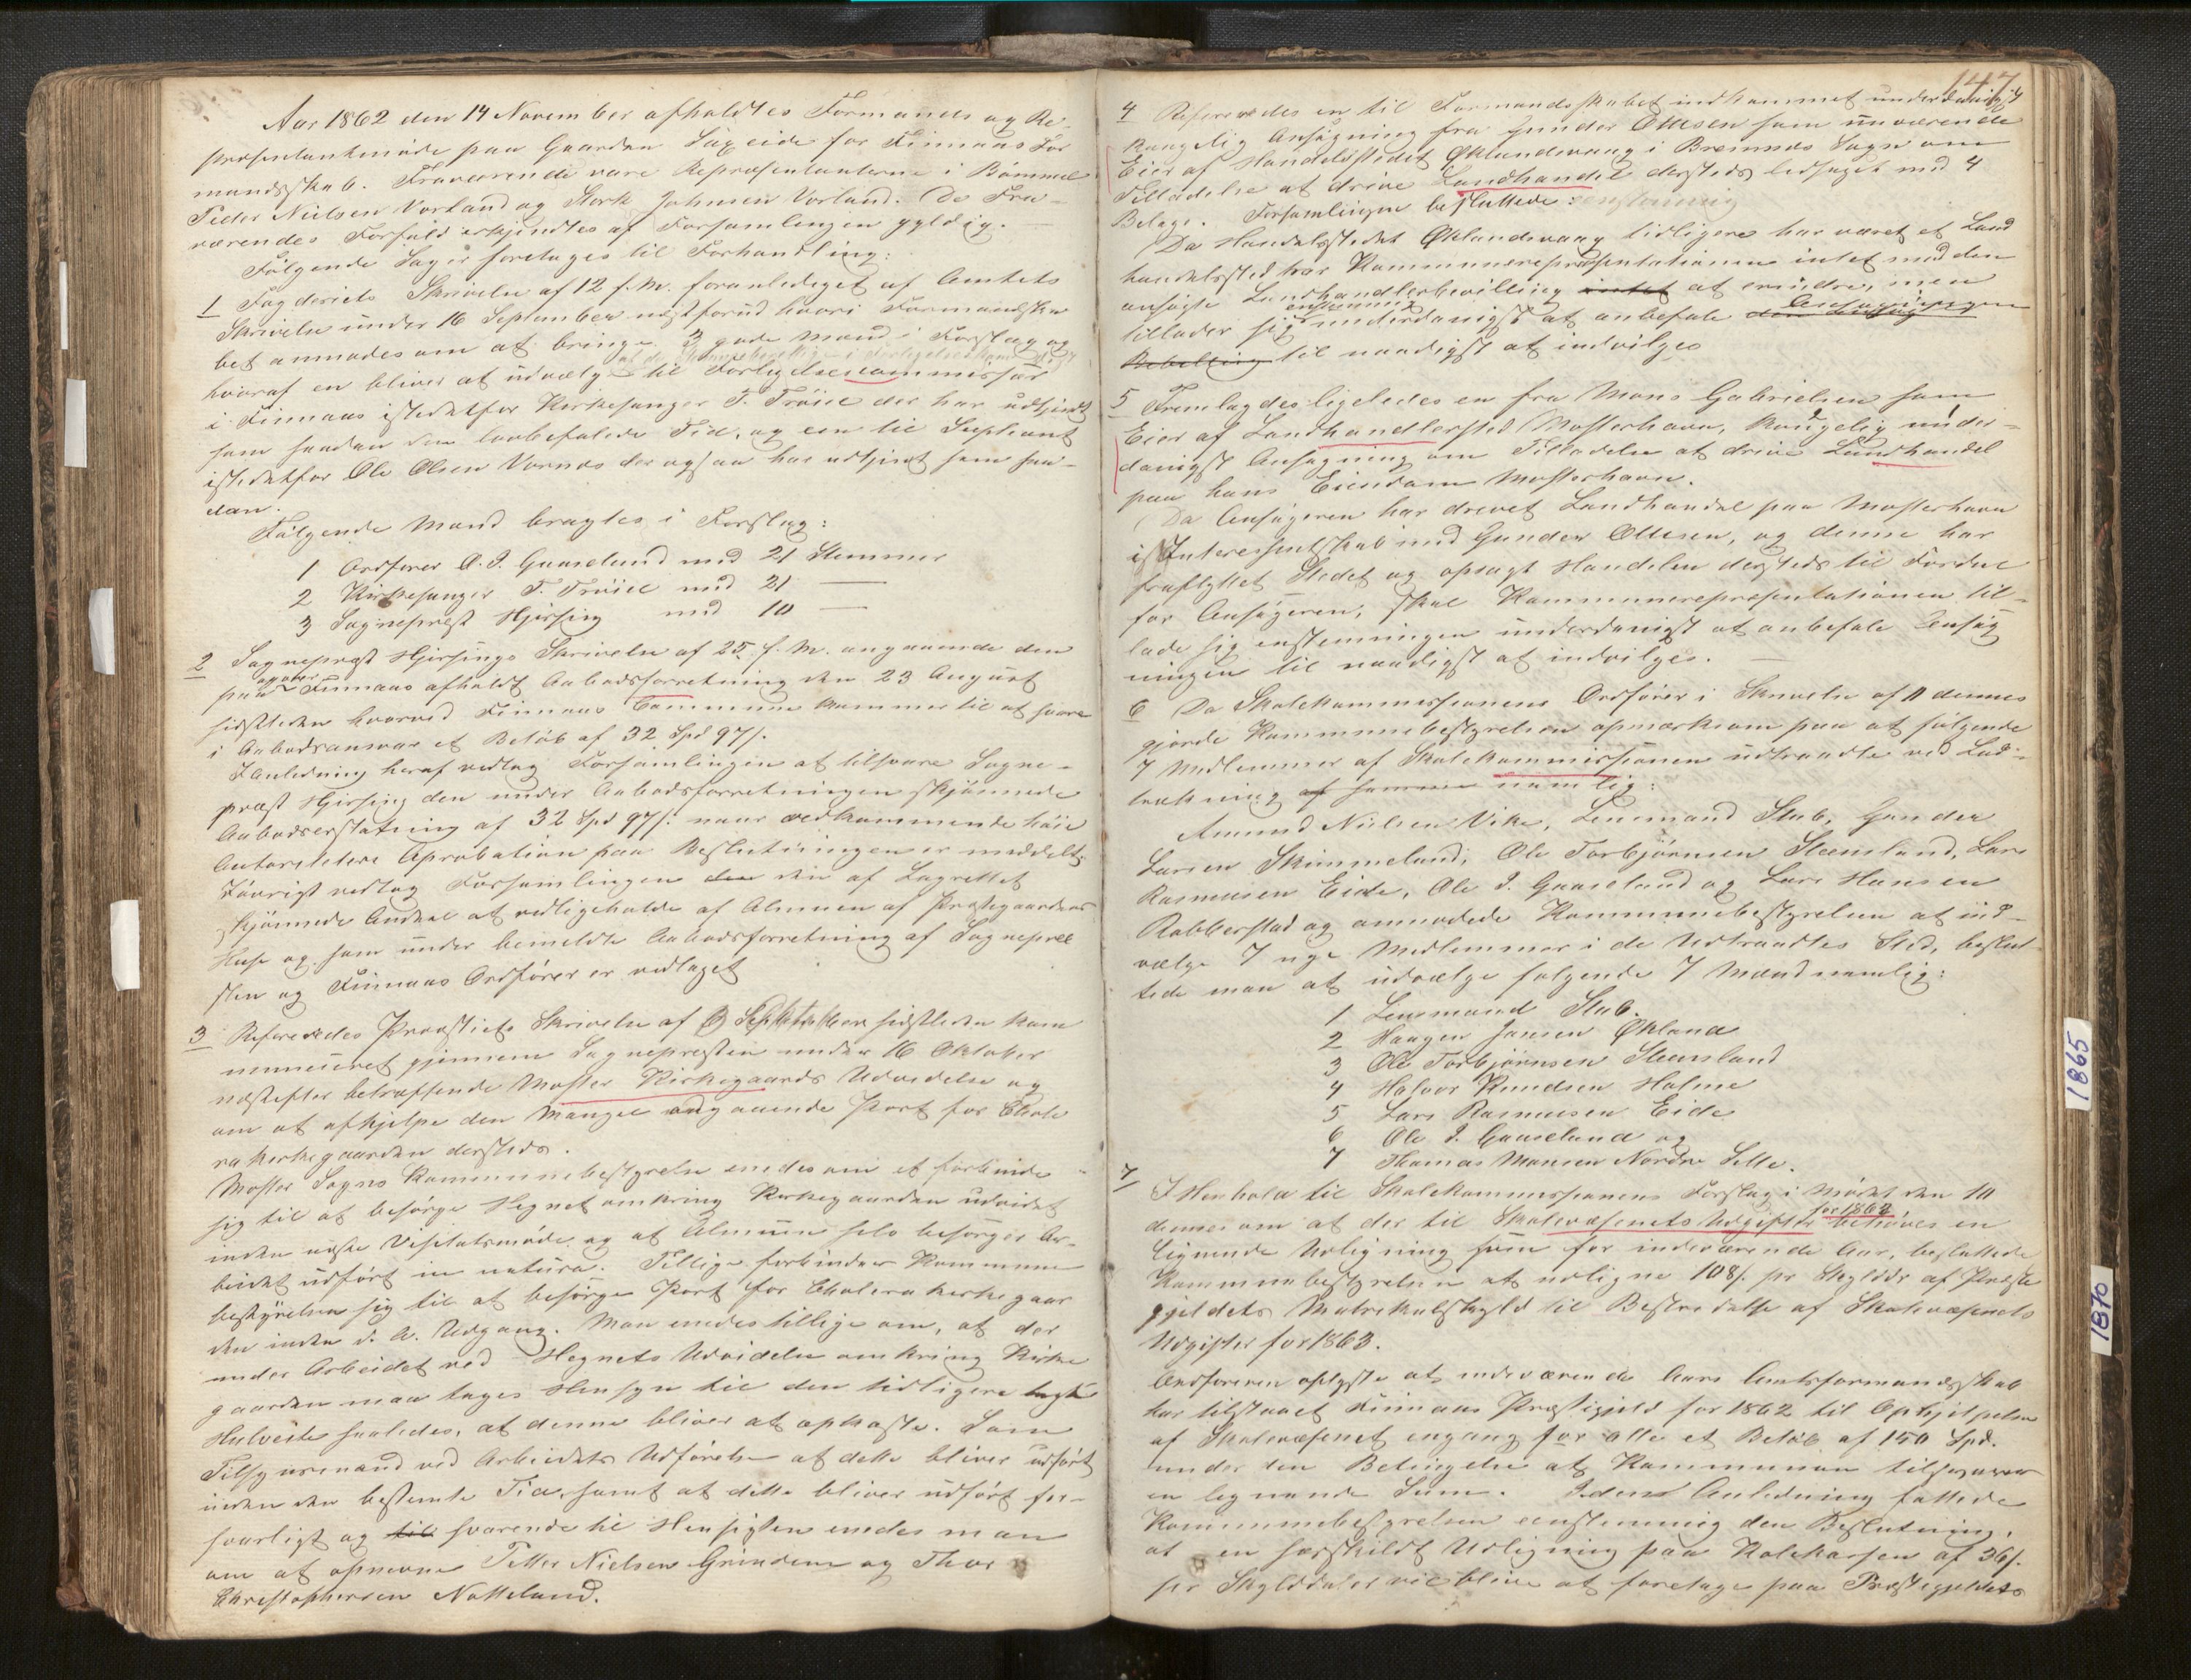 Aar 1862 den 14 November afholdtes Formands og Re-
præsentantmøde paa Gaarden Siggeide for Finnaas For
mandsskab. Fraværende vare Repræsentanterne i Bømmel
Peder Nielsen Vorland og Stork Johnsen Vorland. De Fra-
værendes Forfald erkjendtes af Forsamlingen gyldig.
Følgende Sager foretages til Forhandling:
1 Fogderiets Skrivelse af 12 f. M. foranlediget af Amtets
Skrivelse under 16 September næstforud hvori Formandska
bet anmodes om at bringe 3 gode Mænd i Forslag og
hvoraf en bliver at udvælge til Forligelsescommissær
i Finnaas istedetfor Kirkesanger T. Trøiel der har udtjent
som saadan den lovbefalede Tid, og een til Supleant
istedetfor Ole Olsen Vornæs der ogsaa har udtjent som saa-
dan.
Følgende Mænd bragtes i Forslag:
1 Ordfører O. J. Gaaseland med 21 Stemmer
2 Kirkesanger T. Trøiel med 21 —
3 Sogneprest Hjorsing med 10 —
2 Sogneprest Hjorsings Skrivelse af 25 f. M. angaaende den
paa og over Finnaas afholdt Aabodsforretning den 23 August
sidstleden hvorved Finnaas Commune kommer til at svare
i Aabodsansvar et Beløb af 32 Spd 97 s.
I Anledning heraf vedtog Forsamlingen at tilsvare Sogne-
præst Hjorsing den under Aabodsforretningen skjønnede
Aabodserstatning af 32 Spd 97 s. naar vedkommende høie
Autoriteters Aprobation paa Beslutningen er meddelt.
Iøvrigt vedtog Forsamlingen den af Lagrettet
skjønnede Andeel at vedligeholde af Almuen af Præstegaardens
Huse og som under bemeldte Aabodsforretning af Sognepræ
sten og Finnaas Ordfører er vedtaget
3 Refereredes Provstiets Skrivelse af September sidstleden kom
municeret gjennem Sognepresten under 16 Oktober
næstefter betræffende Moster Kirkegaards Udvidelse og
om at afhjelpe den Mangel angaaende Port for Chole
rakirkegaarden dersteds.
Moster Sogns Kommunebestyrelse enedes om at forbinde
sig til at besørge Hegnet omkring Kirkegaarden udvidet
inden næste Visitatsmøde og at Almuen selv besørger Ar-
beidet udført in natura. Tillige forbinder Kommune
bestyrelsen sig til at besørge Port for Cholerakirkegaar
den inden d. A. Udgang. Man enedes tillige om, at der
under Arbeidet ved Hegnets Udvidelse omkring Kirke
gaarden maa tages Hensyn til den tidligere lagte
saaledes, at denne bliver at opkaste. Som
Tilsynsmænd ved Arbeidets Udførelse at dette bliver udført
inden den bestemte Tid, samt at dette bliver udført for-
svarligt og til svarende til Hensigten enedes man
om at opnevne Petter Nielsen Grinden og Thor
Christophersen Notteland.
147
4 Refereredes en til Formandsskabet indkommet underdanigst
Kongelig Ansøgning fra Gunder Ottesen som nuværende
Eier af Handelsstedet Øklandsvaag i Bremnæs Sogn om
Tilladelse at drive Landhandel dersteds ledsaget med 4
Belage. Forsamlingen besluttede: enstemmig
Da Handelsstedet Øklandsvaag tidligere har været et Land
handelssted har Kommunerepræsentationen intet mod den
ansøgte Landhandlerbevilling intet at erindre, men
tillader sig enstemmig underdanigst at anbefale den Ansøgningen
Bevilling til naadigst at indvilges
5 Fremlagdes ligeledes en fra Mons Gabrielsen som
Eier af Landhandlersted Mosterhavn, Kongelig under-
danigst Ansøgning om Tilladelse at drive Landhandel
paa hans Eiendom Mosterhavn.
Da Ansøgeren har drevet Landhandel paa Mosterhavn
i Interessentskab med Gunder Ottesen, og denne har
fraflyttet Stedet og opsagt Handelen dersteds til Fordeel
for Ansøgeren, skal Kommunerepræsentationen til-
lade sig enstemmigen underdanigst at anbefale Ansøg
ningen til naadigst at indvilges.
6 Da Skolekommissionens Ordfører i Skrivelse af 11 dennes
gjorde Kommunebestyrelsen opmærksom paa at følgende
7 Medlemmer af Skolekommissionen udtraadte ved Lod-
trækning af samme nemlig:
Amund Nielsen Vike, Lensmand Stub, Gunder
Larsen Skimmeland, Ole Torbjørnsen Steensland, Lars
Rasmussen Eide, Ole J. Gaaseland og Lars Hansen
Robberstad og anmodede Kommunebestyrelsen at ud-
vælge 7 nye Medlemmer i de Udtraadtes Sted, beslut
tede man at udvælge følgende 7 Mænd nemlig:
1 Lensmand Stub.
2 Haagen Jansen Økland
3 Ole Torbjørnsen Steensland
4 Halvor Knudsen Holme
5 Lars Rasmussen Eide
6 Ole J. Gaaseland og
7 Thomas Monsen Nordre Selle.
7 I Henhold til Skolekommissionens Forslag i Mødet den 10
dennes om at der til Skolevæsenets Udgifter for 1863 behøves en
lignende Udligning som for indeværende Aar, besluttede
Kommunebestyrelsen at udligne 108 s. pr Skylddr af Præste
gjeldets Matrikulskyld til Bestridelse af Skolevæsenets
Udgifter for 1863.
Ordføreren oplyste at indeværende Aars Amtsformandsskab
har tilstaaet Finnaas Præstegjeld for 1862 til Ophjelpelse
af Skolevæsenet engang for alle et Beløb af 150 Spd.
under den Betingelse at Kommunen tilskyder
en lignende Sum. I den Anledning fattede
Kommunebestyrelsen eenstemmig den Beslutning,
at en særskildt Udligning paa Skolekassen af 36 s.
pr Skylddaler vil blive at foretage paa Præstegjeldets
1865
1870